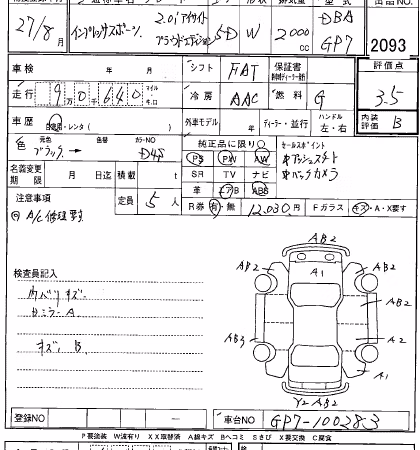 27/8月 インプレッサスポーツ 2.0iアイサイト 5D W 2000 CC DBA
プラウドエディション GP7 2093
車検 年 月 シフト FAT 保証書 評価点
走行 9万0千640 マイル キロ 冷房 AAC 燃料 G 3.5
車歴 自家用・レンタ( ) 外車モデル 年 ディーラー・並行 ハンドル 左・右 内装評価 B
色 元色 ブラック 色替 カラーNO D4S 純正品に限り セールスポイント
PS PW AW プッシュスタート
名義変更期限 月 日迄 積載 t SR TV ナビ バックカメラ
革 エアB ABS
注意事項 定員 5人 R券 有・無 12,030円 Fガラス キズ・A・X要す
A/C修理要す
AB2
AB2 A1 AB2
検査員記入
内バリキズ
ミラーA
AB2 AB2
キズ、B AB3 A2
A1
Y2 AB2
登録NO 車台NO GP7-100283
P要塗装 W波有り XX取替済 A線キズ Bヘコミ Sさび X要交換 C腐食